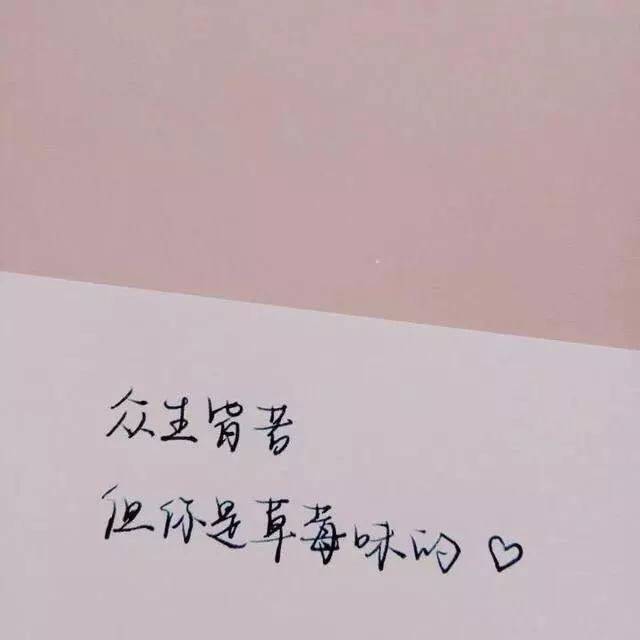 众生皆苦
但你是草莓味的 ♡